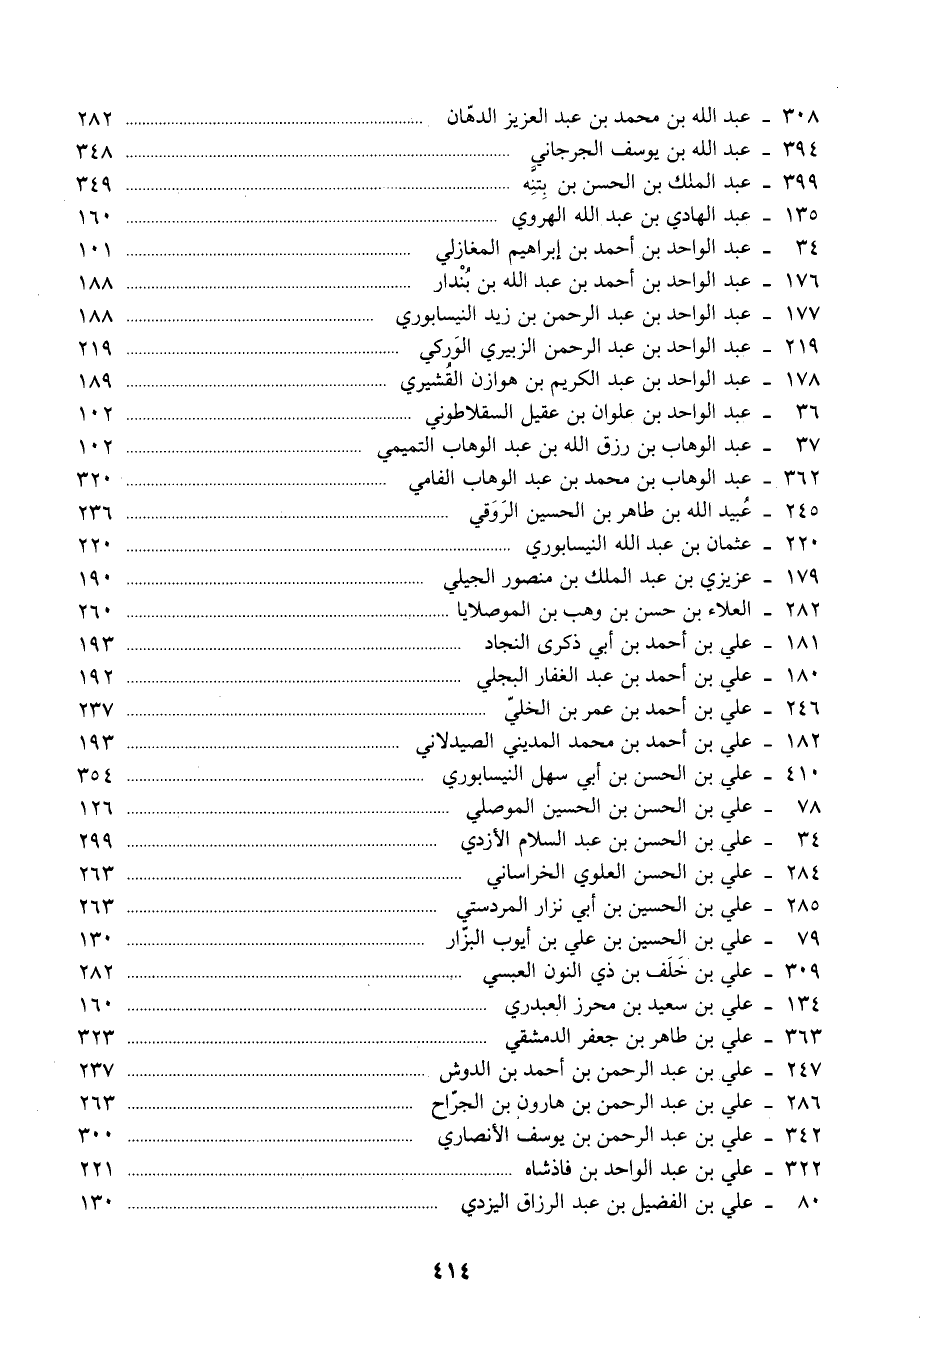 ٣٠٨ ـ عبد الله بن محمد بن عبد العزيز الدهّان .... ٢٨٢
٣٩٤ ـ عبد الله بن يوسف الجرجاني .... ٣٤٨
٣٩٩ ـ عبد الملك بن الحسن بن بِتنَّه .... ٣٤٩
١٣٥ ـ عبد الهادي بن عبد الله الهروي .... ١٦٠
٣٤ ـ عبد الواحد بن أحمد بن إبراهيم المغازلي .... ١٠١
١٧٦ ـ عبد الواحد بن أحمد بن عبد الله بن بُنْدار .... ١٨٨
١٧٧ ـ عبد الواحد بن عبد الرحمن بن زيد النيسابوري .... ١٨٨
٢١٩ ـ عبد الواحد بن عبد الرحمن الزبيري الوَركي .... ٢١٩
١٧٨ ـ عبد الواحد بن عبد الكريم بن هوازن القُشيري .... ١٨٩
٣٦ ـ عبد الواحد بن علوان بن عقيل السقلاطوني .... ١٠٢
٣٧ ـ عبد الوهاب بن رزق الله بن عبد الوهاب التميمي .... ١٠٢
٣٦٢ ـ عبد الوهاب بن محمد بن عبد الوهاب الفامي .... ٣٢٠
٢٤٥ ـ عُبيد الله بن طاهر بن الحسين الرَوَقي .... ٢٣٦
٢٢٠ ـ عثمان بن عبد الله النيسابوري .... ٢٢٠
١٧٩ ـ عزيزي بن عبد الملك بن منصور الجيلي .... ١٩٠
٢٨٢ ـ العلاء بن حسن بن وهب بن الموصلايا .... ٢٦٠
١٨١ ـ علي بن أحمد بن أبي ذكرى النجاد .... ١٩٣
١٨٠ ـ علي بن أحمد بن عبد الغفار البجلي .... ١٩٢
٢٤٦ ـ علي بن أحمد بن عمر بن الخليّ .... ٢٣٧
١٨٢ ـ علي بن أحمد بن محمد المديني الصيدلاني .... ١٩٣
٤١٠ ـ علي بن الحسن بن أبي سهل النيسابوري .... ٣٥٤
٧٨ ـ علي بن الحسن بن الحسين الموصلي .... ١٢٦
٣٤ ـ علي بن الحسن بن عبد السلام الأزدي .... ٢٩٩
٢٨٤ ـ علي بن الحسن العلوي الخراساني .... ٢٦٣
٢٨٥ ـ علي بن الحسين بن أبي نزار المردستي .... ٢٦٣
٧٩ ـ علي بن الحسين بن علي بن أيوب البزّار .... ١٣٠
٣٠٩ ـ علي بن خَلَف بن ذي النون العبسي .... ٢٨٢
١٣٤ ـ علي بن سعيد بن محرز العبدري .... ١٦٠
٣٦٣ ـ علي بن طاهر بن جعفر الدمشقي .... ٣٢٣
٢٤٧ ـ علي بن عبد الرحمن بن أحمد بن الدوش .... ٢٣٧
٢٨٦ ـ علي بن عبد الرحمن بن هارون بن الجرّاح .... ٢٦٣
٣٤٢ ـ علي بن عبد الرحمن بن يوسف الأنصاري .... ٣٠٠
٣٢٢ ـ علي بن عبد الواحد بن فاذشاه .... ٢٢١
٨٠ ـ علي بن الفضيل بن عبد الرزاق اليزدي .... ١٣٠
٤١٤